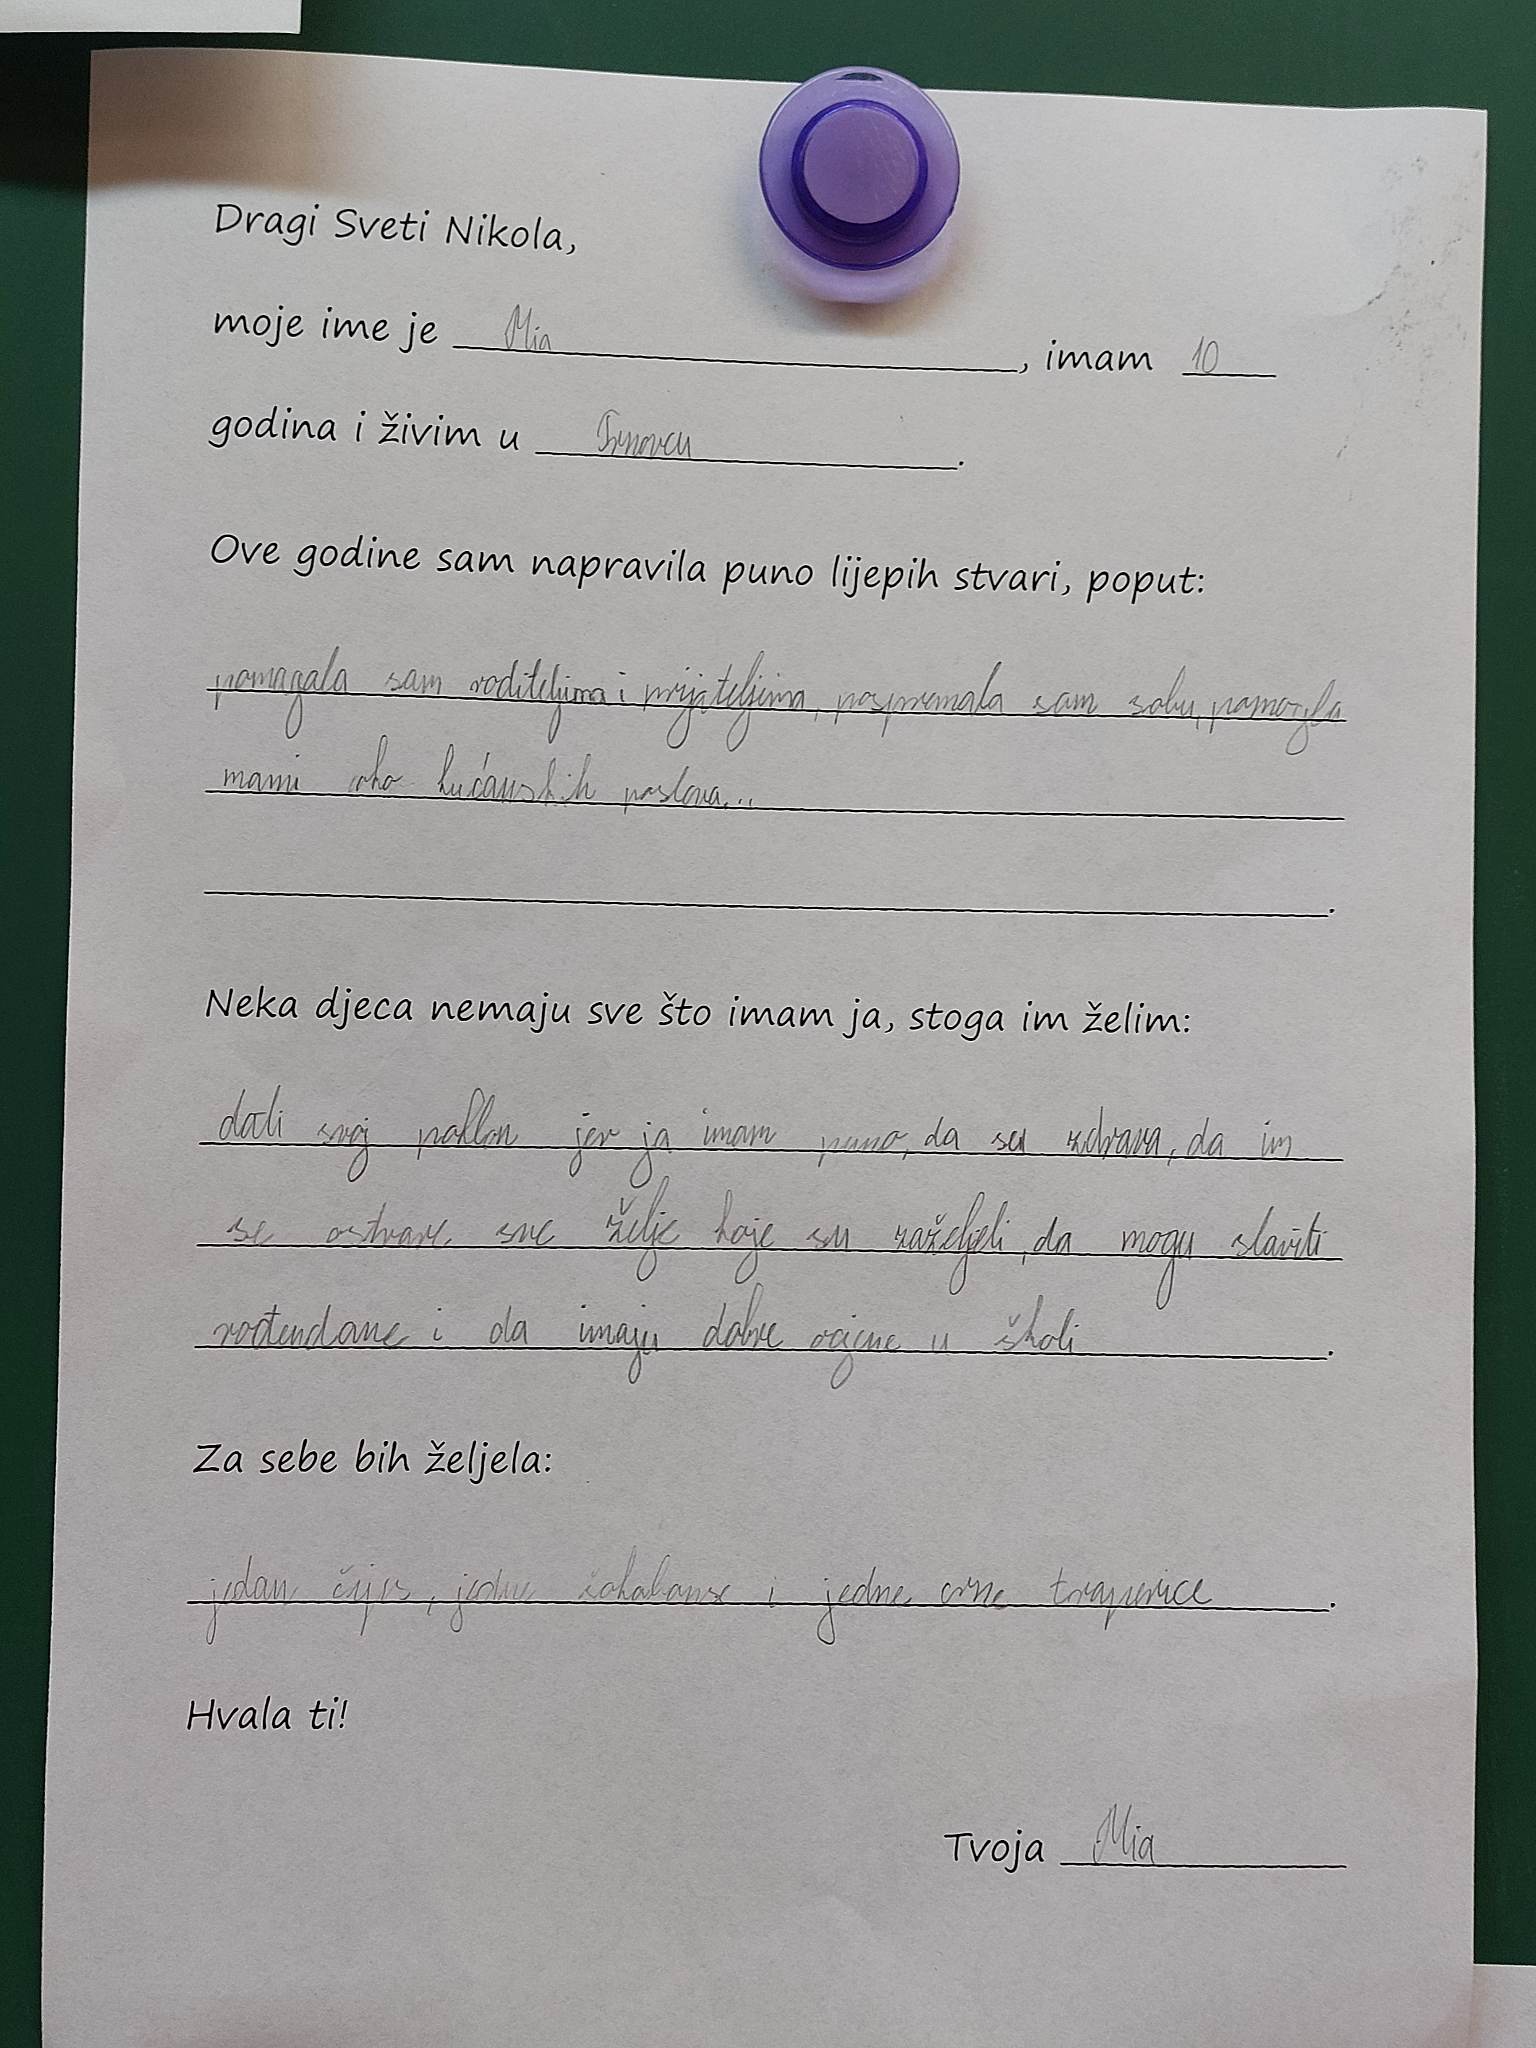 Dragi Sveti Nikola,
moje ime je Mia, imam 10
godina i živim u Trnovcu.
Ove godine sam napravila puno lijepih stvari, poput:
pomagala sam roditeljima i prijateljima, pospremala sam sobu, pomogla
mami oko kućanskih poslova...
Neka djeca nemaju sve što imam ja, stoga im želim:
dati svoj poklon jer ja imam puno, da su zdrava, da im
se ostvare sve želje koje su zaželjeli, da mogu slaviti
rođendane i da imaju dobre ocjene u školi.
Za sebe bih željela:
jedan čips, jedne i jedne crne traperice.
Hvala ti!
Tvoja Mia